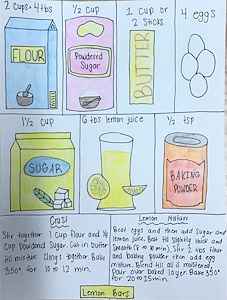 2 Cups + 4 tbs
½ Cup
1 cup or
2 Sticks
4 eggs
FLOUR
Powdered
Sugar
BUTTER
1½ cup
6 tbs lemon juice
½ tsp
SUGAR
BAKING
POWDER
Crust
Stir together 1 Cup flour and ¼
cup powdered Sugar. Cut in butter
till mixture Clings together. Bake
350° for 10 to 12 min.
Lemon Mixture
Beat eggs and then add Sugar and
lemon juice. Beat till slightly thick and
Smooth (8 to 10 min). Stir 2 tbs flour
and baking powder then add egg
mixture. Blend till all is moistened.
Pour over baked layer. Bake 350°
for 20 to 25 min.
Lemon Bars